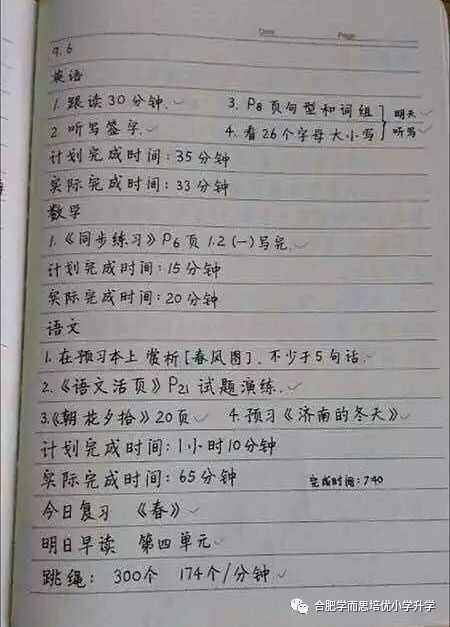 Date Page
9.6
英语
1. 跟读30分钟. ✓ 3. P8页句型和词组 } 明天
2. 听写签字. ✓ 4. 看26个字母大小写 } 听写
计划完成时间: 35分钟
实际完成时间: 33分钟
数学
1.《同步练习》P6页 1.2 (一)写完. ✓
计划完成时间: 15分钟
实际完成时间: 20分钟
语文
1. 在预习本上 赏析[春风图]. 不少于5句话. ✓
2.《语文活页》P21 试题演练. ✓
3.《朝花夕拾》20页 ✓ 4. 预习《济南的冬天》 ✓
计划完成时间: 1小时10分钟
实际完成时间: 65分钟 完成时间: 7:40
今日复习 《春》 ✓
明日早读 第四单元 ✓
跳绳: 300个 174个/分钟 ✓
合肥学而思培优小学升学